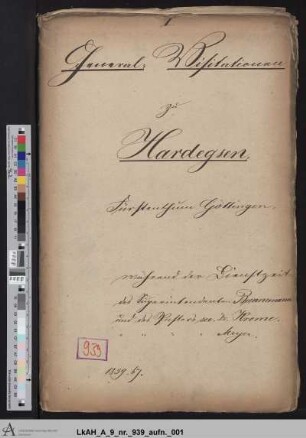 1
General Visitationen
zu
Hardegsen,
Fürstenthum Göttingen,
während der Dienstzeit
des Superintendenten
und des Pastors Krome
" " " Meyer
939
1859. 67.
LkAH_A_9_nr._939_aufn._001